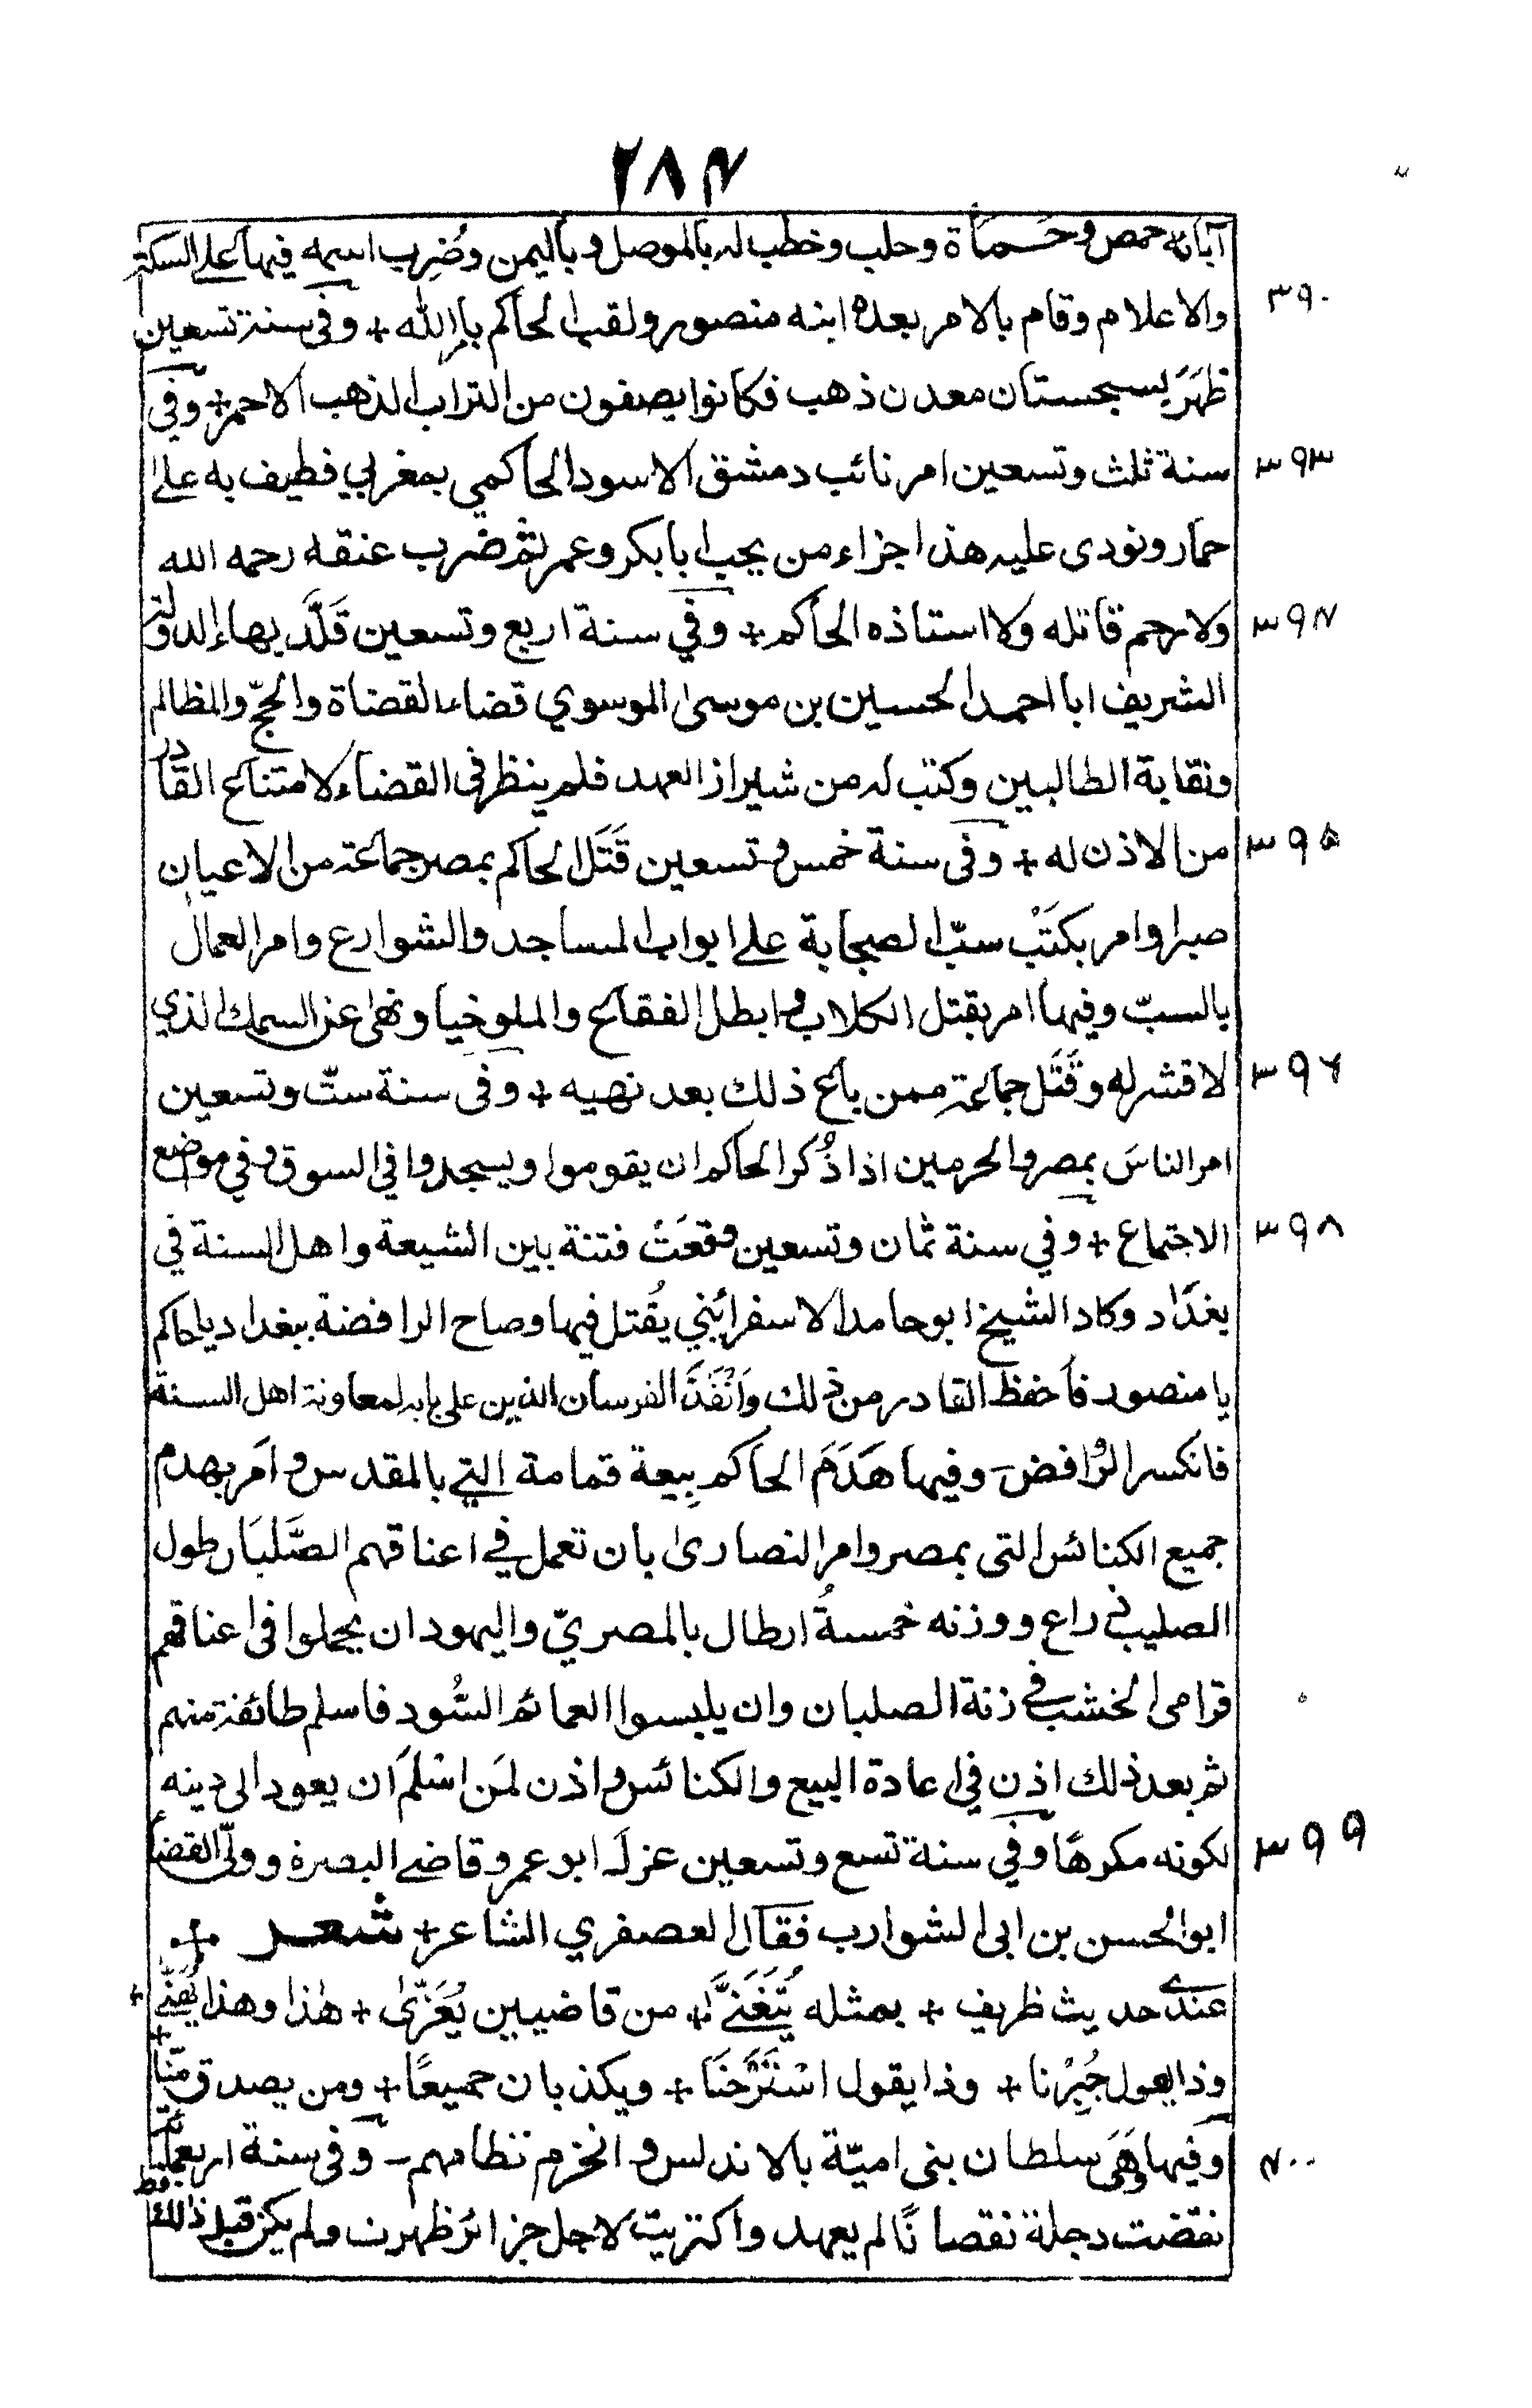 ٢٨٤
آبائه حمص وحماة وحلب وخطب له بالموصل وباليمن وضُرِب اسمه فيها على السكة
والاعلام وقام بالامر بعده ابنه منصور ولقب الحاكم بامر الله + وفى سنة تسعين
٣٩٠
ظهَرَ بسجستان معدن ذهب فكانوا يصفون من التراب الذهب الاحمر + وفي
سنة ثلث وتسعين امر نائب دمشق الاسود الحاكمي بمغربي فطيف به على
٣٩٣
حمار ونودى عليه هذا جزاء من يحب ابا بكر وعمر ثم ضرب عنقه رحمه الله
ولا رحم قاتله ولا استاذه الحاكم + وفي سنة اربع وتسعين قَلَّد بهاء الدولة
٣٩٤
الشريف ابا احمد الحسين بن موسى الموسوي قضاء القضاة والحجّ والمظالم
ونقابة الطالبين وكتب له من شيراز العهد فلم ينظر فى القضاء لامتناع القادر
من الاذن له + وفى سنة خمس وتسعين قَتَل الحاكم بمصر جماعة من الاعيان
٣٩٥
صبرا وامر بكَتْب سبّ الصحابة على ابواب المساجد والشوارع وامر العمال
بالسبّ وفيها امر بقتل الكلاب وابطل الفقاع والملوخيا ونهى عن السمك الذي
لا قشر له وقَتَل جماعة ممن باع ذلك بعد نهيه + وفى سنة ستّ وتسعين
٣٩٦
امر الناسَ بمصر والحرمين اذا ذُكر الحاكم ان يقوموا ويسجدوا في السوق وفي مواضع
الاجتماع + وفي سنة ثمان وتسعين وقعَتْ فتنة بين الشيعة واهل السنة في
٣٩٨
بغداد وكاد الشيخ ابو حامد الاسفرائني يُقتل فيها وصاح الرافضة ببغداد ياحاكم
يا منصور فاَحفظ القادر من ذلك وَاَنْفَذَ الفرسان الذين على بابه لمعاونة اهل السنة
فانكسر الروافض ـ وفيها هَدَمَ الحاكم بِيعة قمامة التي بالمقدس وامَر بهدم
جميع الكنائس التى بمصر وامر النصارى بان تعمل في اعناقهم الصَّلبَان طول
الصليب ذراع ووزنه خمسةُ ارطال بالمصريّ واليهود ان يحملوا فى اعناقهم
قرامى الخشب في زنة الصلبان وان يلبسوا العمائم السُّود فاسلم طائفة منهم
ثم بعد ذلك اذن في اعادة البيع والكنائس واذن لمَن اسْلَمَ ان يعود الى دينه
لكونه مكرهًا وفي سنة تسع وتسعين عزل ابو عمرو قاضى البصرة وولّى القضاء
٣٩٩
ابو الحسن بن ابى الشوارب فقال العصفري الشاعر + شعر +
عندى حديث ظريف + بمثله يُتَغَنَّى + من قاضيين يُعَزّى + هٰذا وهذا يُهَنّى +
وذا يقول جُبِرْنا + وذا يقول اسْتَرَحْنَا + ويكذبان جميعًا + ومن يصدق مِنّا +
وفيها وَهَى سلطان بنى اميّة بالاندلس وانخرم نظامهم ـ وفى سنة اربعمائة
٤٠٠
نقصت دجلة نقصانًا لم يعهد واكتريت لاجل جزائر ظهرت ولم يكن قبل ذلك قط